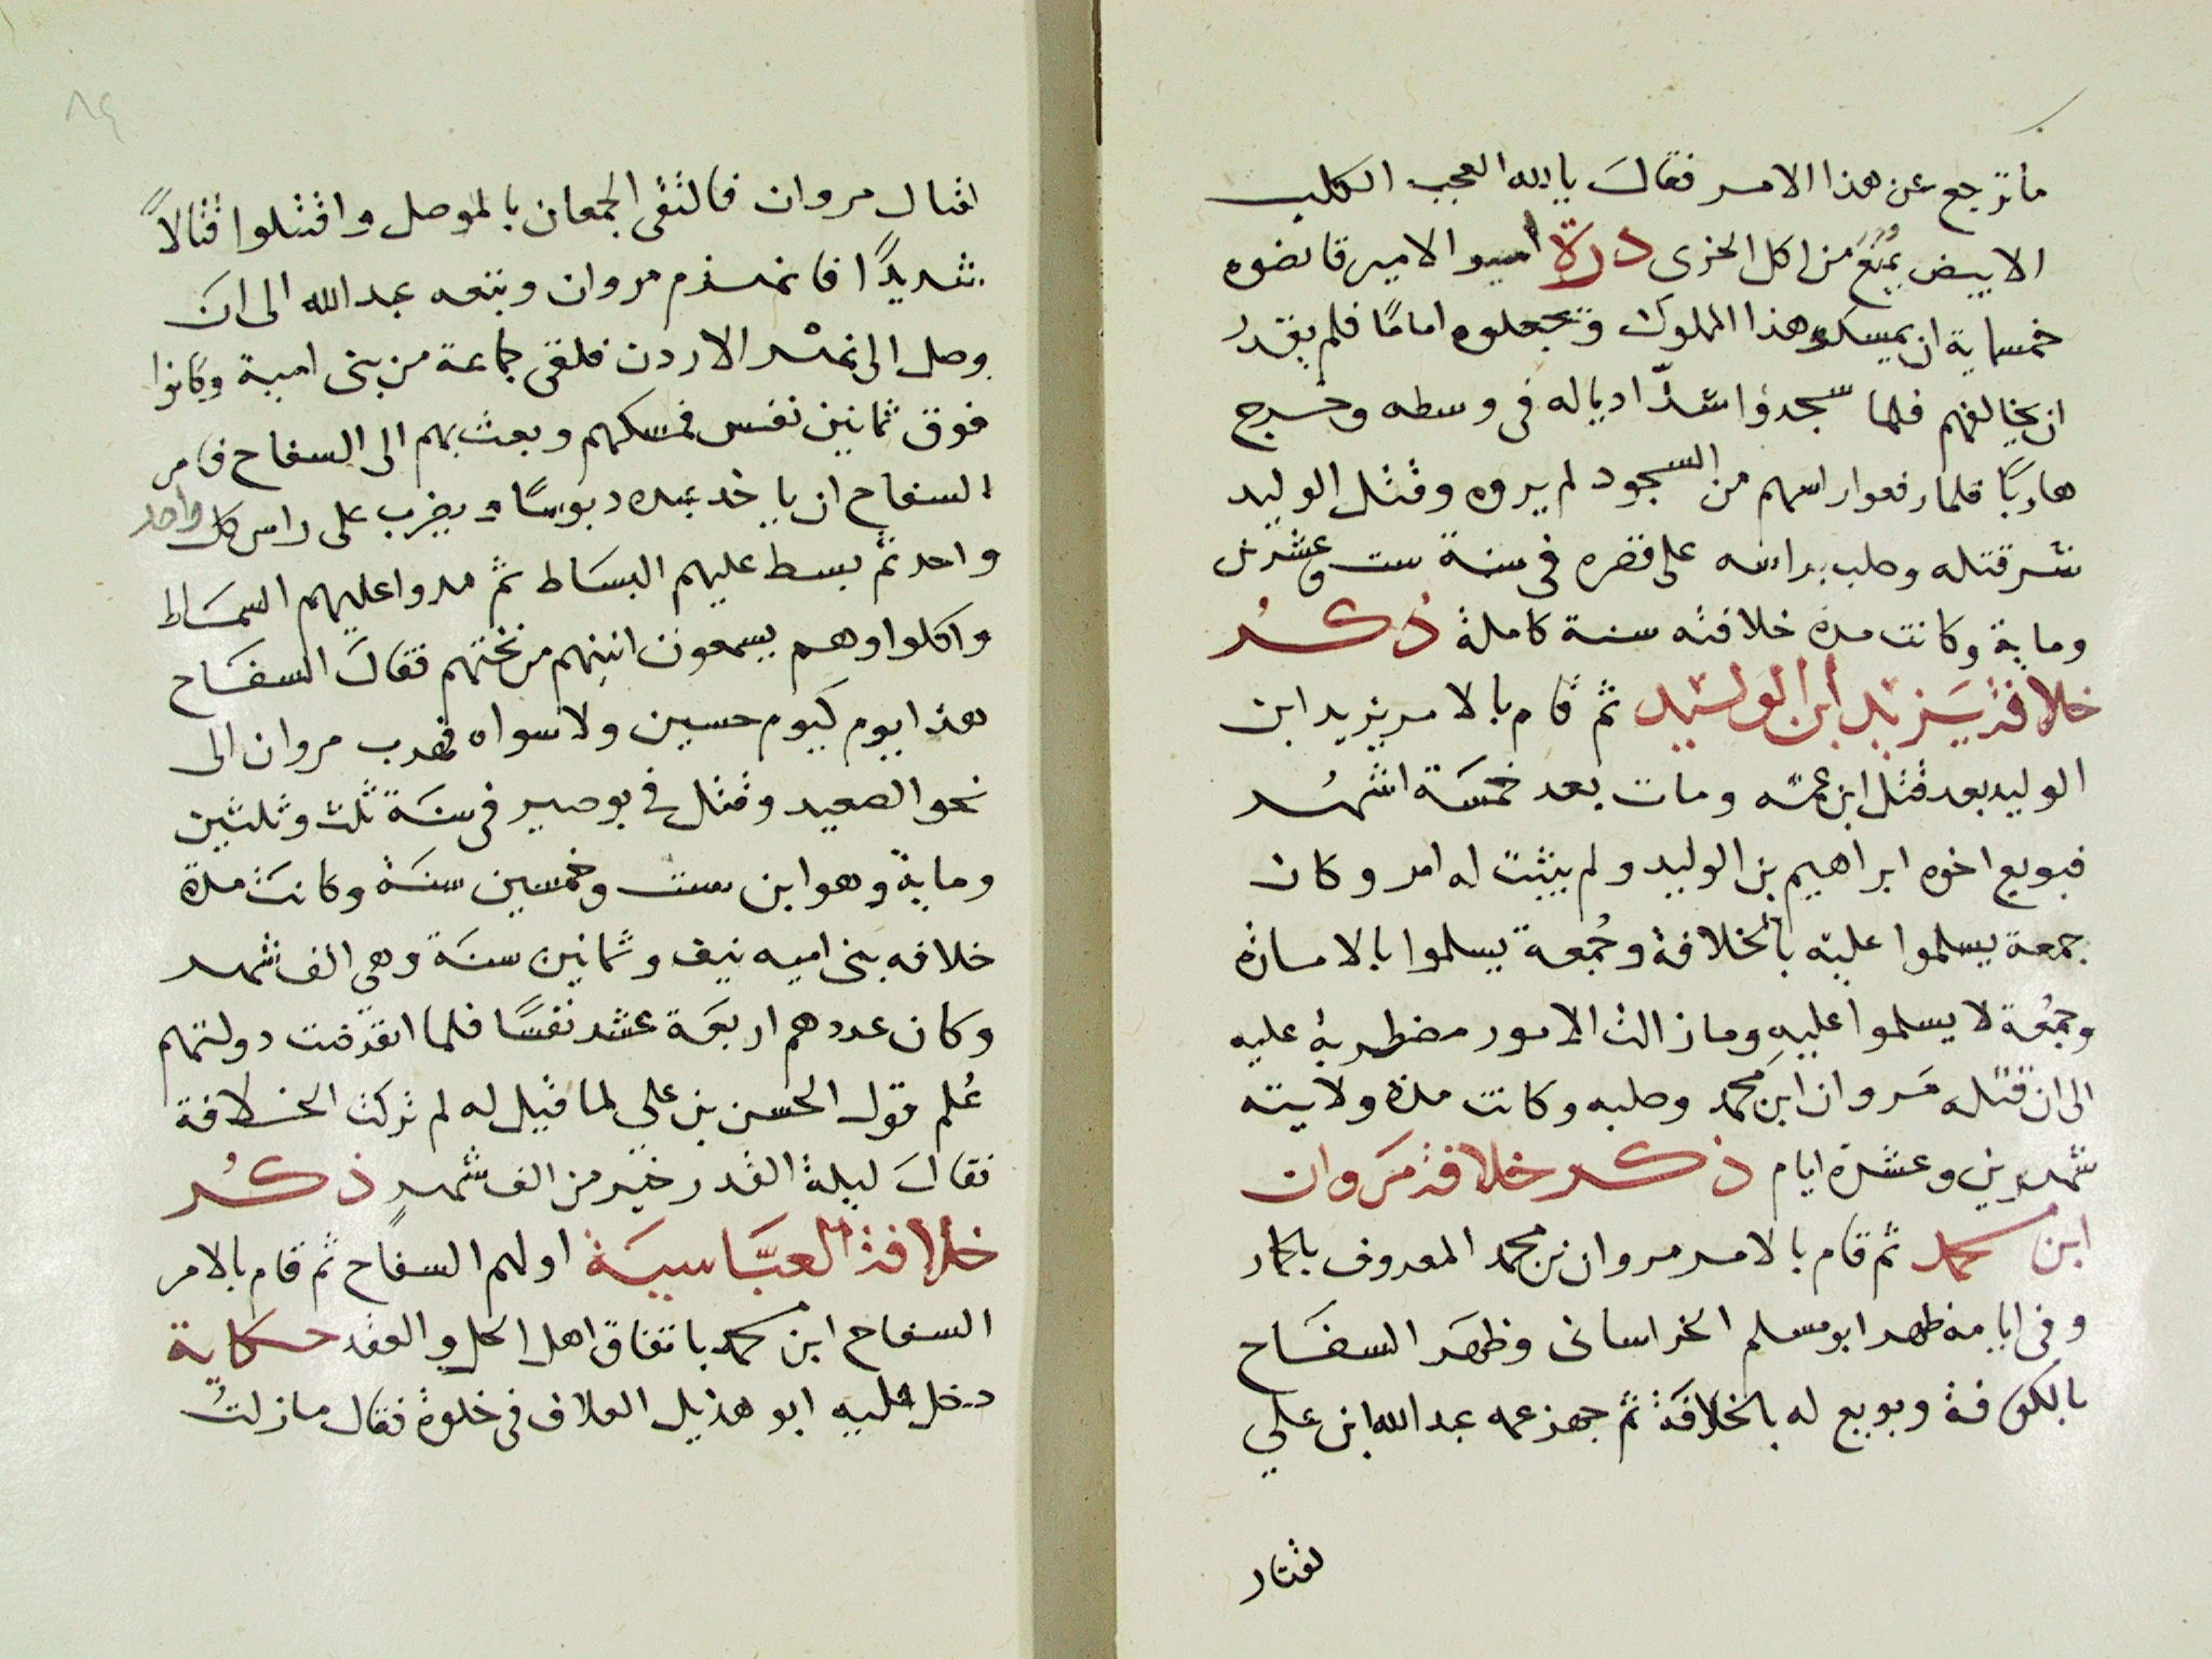 ما ترجع عن هذا الامر فقال يا لله العجب الكلب
الابيض يمنع من اكل الخرى درة امير الامير قانصوه
خمسماية ان يمسكو هذا الملوك وتجعلوه امامًا فلم يقدر
ان يخالفهم فلما سجدوا شدّ اديا له فى وسطه وخرج
هاربًا فلما رفعوا راسهم من السجود لم يروه وقتل الوليد
شر قتله وصلب براسه على قصره فى سنة ست وعشرين
وماية وكانت مدة خلافته سنة كاملة ذكر
خلافة يزيد ابن الوليد ثم قام بالامر يزيد ابن
الوليد بعد قتل ابن عمه ومات بعد خمسة اشهر
فبويع اخوه ابراهيم بن الوليد ولم يثبت له امر وكان
جمعة يسلموا عليه بالخلافة وجُمعة يسلموا بالامارة
وجمُعة لا يسلموا عليه وما زالت الامور مضطربة عليه
الى ان قتله مَروان ابن محمد وصلبه وكانت مدة ولايته
شهرين وعشرة ايام ذكر خلافة مَروان
ابن محمد ثم قام بالامر مروان بن محمد المعروف بالحمار
وفى ايامه ظهر ابو مسلم الخراسانى وظهر السفاح
بالكوفة وبويع له بالخلافة ثم جهز عمه عبد الله ابن علي
لقتار
اقتال مروان فالتقى الجمعان بالموصل واقتتلوا قتالاً
شديدًا فانهزم مروان وتبعه عبد الله الى ان
وصل الى نهر الاردن فلقى جماعة من بنى امية وكانوا
فوق ثمانين نفس فمسكهم وبعث بهم الى السفاح فامر
السفاح ان ياخذ عبده دبوسًا ويضرب على راس كل واحد
واحد ثم بسط عليهم البساط ثم مدوا عليهم السماط
واكلوا وهم يسمعون انينهم من تحتهم فقال السفاح
هذا يوم كيوم حسين ولا سواه فهرب مروان الى
نحو الصعيد وقتل في بوصير فى سنة ثلث وثلثين
وماية وهو ابن ست وخمسين سنة وكانت مدة
خلافه بنى اميه نيف وثمانين سنة وهى الف شهر
وكان عددهم اربعة عشر نفسًا فلما انقرضت دولتهم
عُلم قول الحسن بن علي لما قيل له لم تركت الخلافة
فقال ليلة القدر خير من الف شهر ذكر
خلافة العبّاسية اولهم السفاح ثم قام بالامر
السفاح ابن محمد باتفاق اهل الحل والعقد حكاية
دخل عليه ابو هذيل العلاف فى خلوة فقال ما زلت